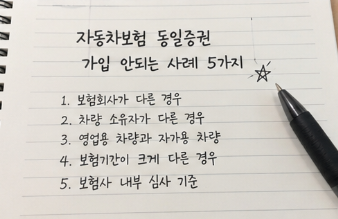 자동차보험 동일증권
가입 안되는 사례 5가지
1. 보험회사가 다른 경우
2. 차량 소유자가 다른 경우
3. 영업용 차량과 자가용 차량
4. 보험기간이 크게 다른 경우
5. 보험사 내부 심사 기준